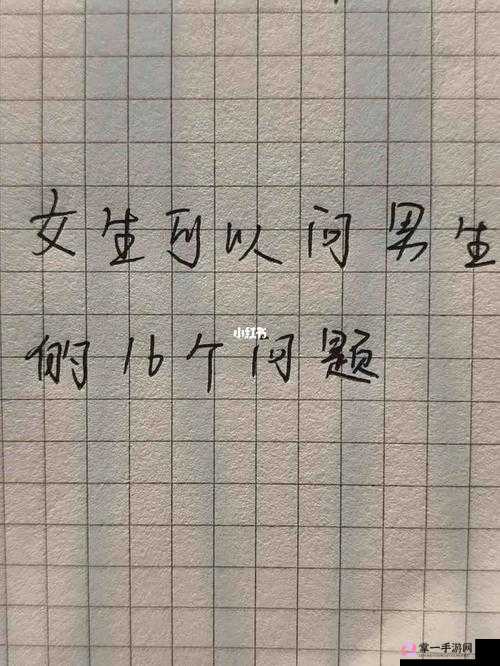 女生可以问男生
小红书
的16个问题
掌一手游网